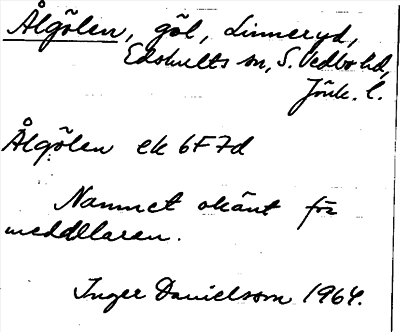 Ålgölen, göl, Linneryd,
Edshults sn, S. Vedbo hd,
Jönk. l.
Ålgölen ek 6F7d
Namnet okänt för
meddelaren.
Inger Danielsson 1964.